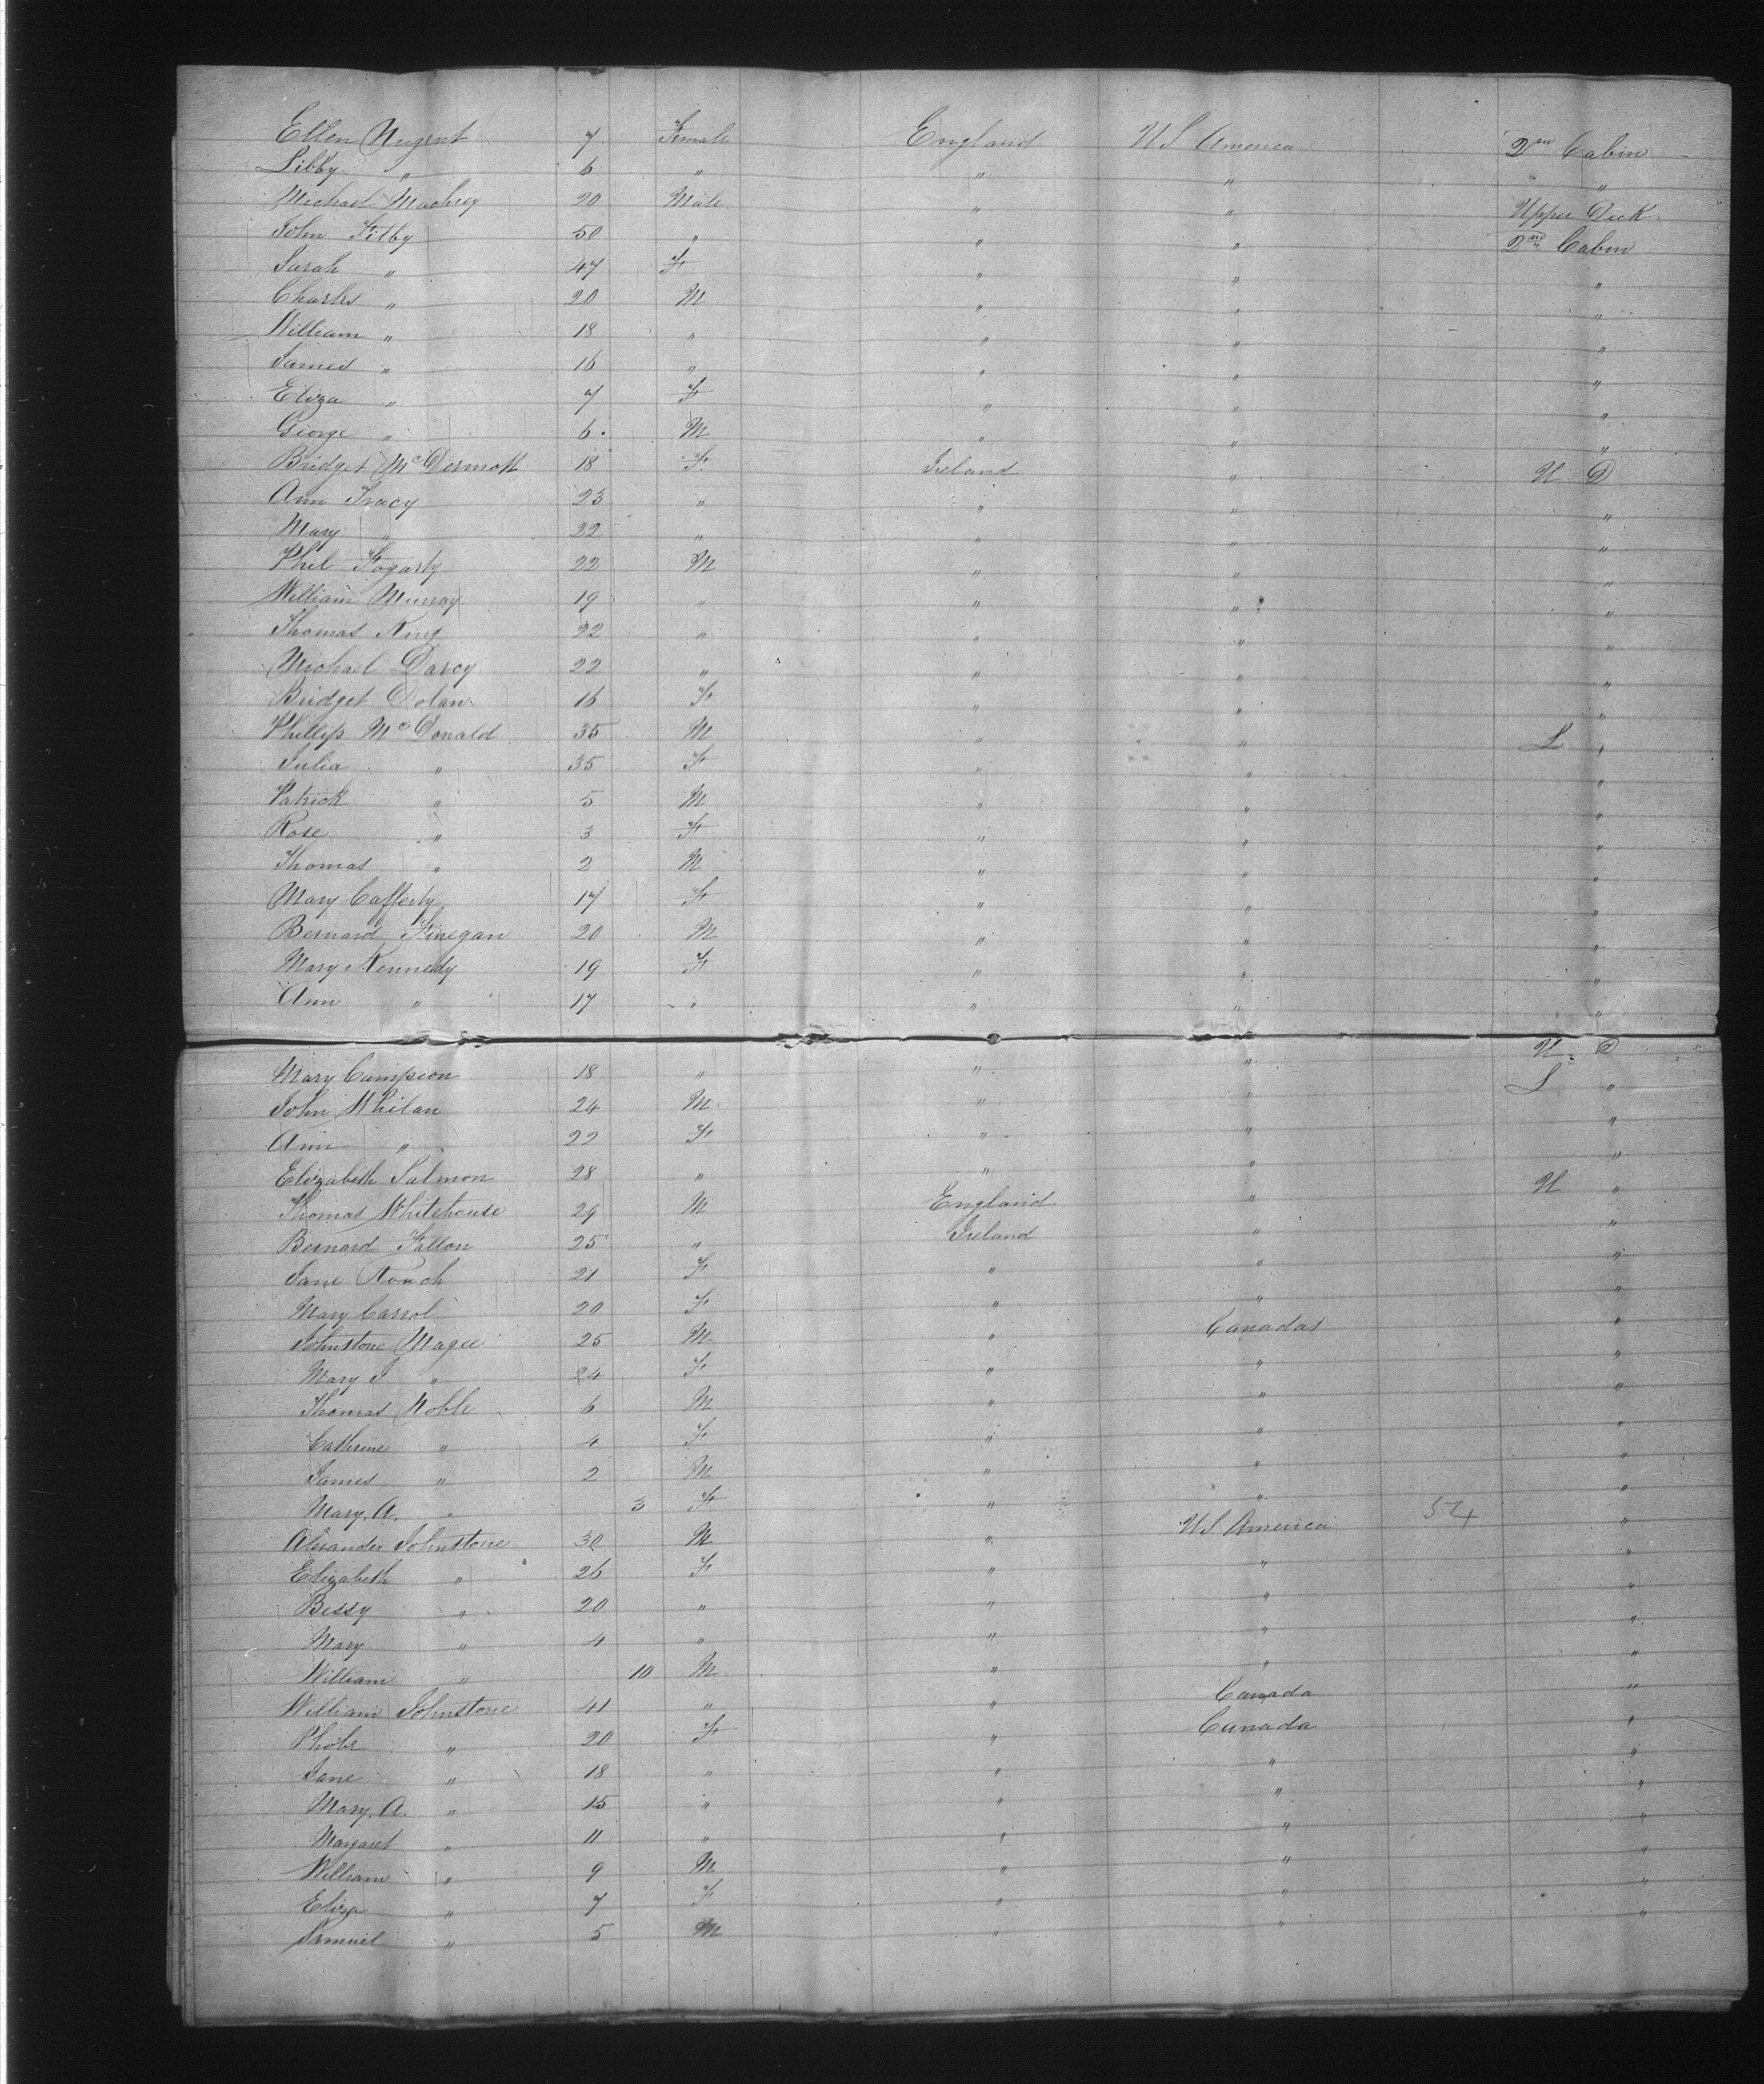 Ellen Nugent 7 Female England US America 2nd Cabin
Libby " 6 " " " "
Michael Machrey 20 Male " " Upper Deck
John Filby 50 " " " 2nd Cabin
Sarah " 47 F " " "
Charles " 20 M " " "
William " 18 " " " "
James " 16 " " " "
Eliza " 7 F " " "
George " 6 M " " "
Bridget McDermott 18 F Ireland " U D
Ann Tracy 23 " " " "
Mary " 22 " " " "
Phil Fogarty 22 M " " "
William Murray 19 " " " "
Thomas King 22 " " " "
Michael Darcy 22 " " " "
Bridget Dolan 16 F " " "
Phillip McDonald 35 M " " L "
Julia " 35 F " " "
Patrick " 5 M " " "
Rose " 3 F " " "
Thomas " 2 M " " "
Mary Cafferty 17 F " " "
Bernard Finegan 20 M " " "
Mary Kennedy 19 F " " "
Ann " 17 " " " "
Mary Campion 18 " " " U D
John Whelan 24 M " " L "
Ann " 22 F " " "
Elizabeth Salmon 28 " " " "
Thomas Whitehouse 29 M England " U "
Bernard Fallon 25 " Ireland " "
Jane Roach 21 F " " "
Mary Carrol 20 F " " "
Johnstone Magee 25 M " Canadas "
Mary J " 24 F " " "
Thomas Noble 6 M " " "
Cathrine " 4 F " " "
James " 2 M " " "
Mary. A. " 3 F " " "
Alexander Johnstone 30 M " US America 54 "
Elizabeth " 26 F " " "
Bessy " 20 " " " "
Mary " 4 " " " "
William " 10 M " " "
William Johnstone 41 " " Canada "
Phobe " 20 F " Canada "
Jane " 18 " " " "
Mary. A. " 15 " " " "
Margaret " 11 " " " "
William " 9 M " " "
Eliza " 7 F " " "
Samuel " 5 M " " "